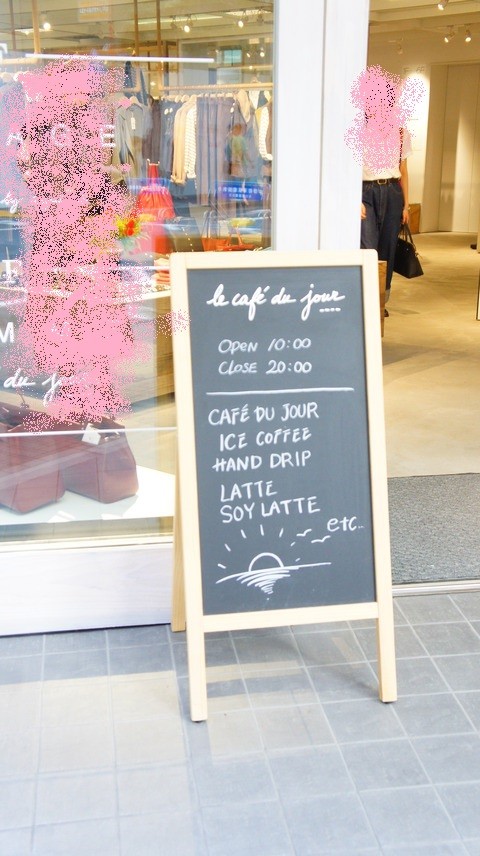 le café du jour
OPEN 10:00
CLOSE 20:00
CAFÉ DU JOUR
ICE COFFEE
HAND DRIP
LATTE
SOY LATTE
etc..